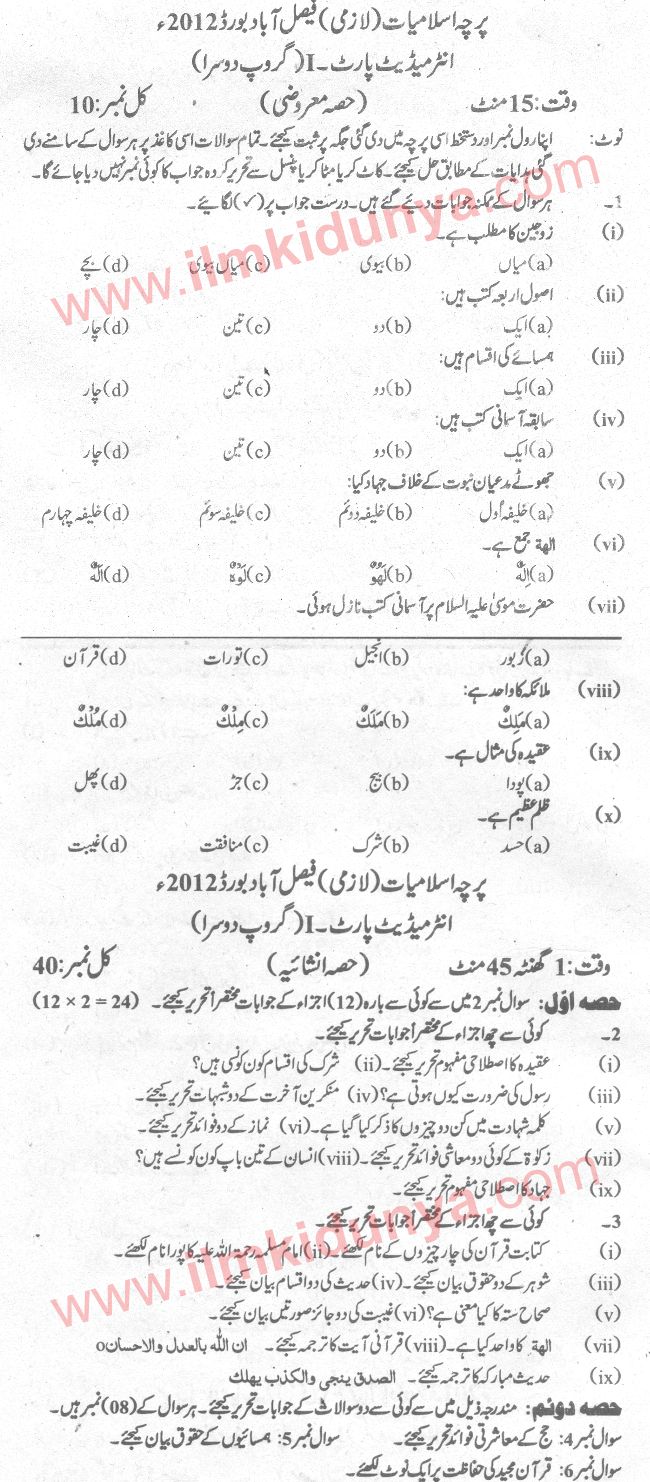 پرچہ اسلامیات (لازمی) فیصل آباد بورڈ 2012ء
انٹرمیڈیٹ پارٹ۔I (گروپ دوسرا)
وقت: 15 منٹ (حصہ معروضی) کل نمبر: 10
نوٹ: اپنا رول نمبر اور دستخط اسی پرچہ میں دی گئی جگہ پر ثبت کیجئے۔ تمام سوالات اسی کاغذ پر ہر سوال کے سامنے دی
گئی ہدایات کے مطابق حل کیجئے۔ کاٹ کر یا مٹا کر یا پنسل سے تحریر کردہ جواب کا کوئی نمبر نہیں دیا جائے گا۔
1۔ ہر سوال کے ممکنہ جوابات دیئے گئے ہیں۔ درست جواب پر (✓) لگائیے۔
(i) زوجین کا مطلب ہے۔
(a) میاں (b) بیوی (c) میاں بیوی (d) بچے
(ii) اصول اربعہ کتب ہیں:
(a) ایک (b) دو (c) تین (d) چار
(iii) ہمسائے کی اقسام ہیں:
(a) ایک (b) دو (c) تین (d) چار
(iv) سابقہ آسمانی کتب ہیں:
(a) ایک (b) دو (c) تین (d) چار
(v) جھوٹے مدعیان نبوت کے خلاف جہاد کیا:
(a) خلیفہ اول (b) خلیفہ دوئم (c) خلیفہ سوئم (d) خلیفہ چہارم
(vi) الھة جمع ہے۔
(a) اِلٰہٌ (b) لَھْوٌ (c) لَوْہٌ (d) اَلٰہٌ
(vii) حضرت موسیٰ علیہ السلام پر آسمانی کتب نازل ہوئی۔
(a) زبور (b) انجیل (c) تورات (d) قرآن
(viii) ملائکہ کا واحد ہے:
(a) مَلِکٌ (b) مَلَکٌ (c) مِلْکٌ (d) مُلْکٌ
(ix) عقیدہ کی مثال ہے۔
(a) پودا (b) بیج (c) جڑ (d) پھل
(x) ظلم عظیم ہے۔
(a) حسد (b) شرک (c) منافقت (d) غیبت
پرچہ اسلامیات (لازمی) فیصل آباد بورڈ 2012ء
انٹرمیڈیٹ پارٹ۔I (گروپ دوسرا)
وقت: 1 گھنٹہ 45 منٹ (حصہ انشائیہ) کل نمبر: 40
حصہ اوّل: سوال نمبر 2 میں سے کوئی سے بارہ (12) اجزاء کے جوابات مختصراً تحریر کیجئے۔ (12 × 2 = 24)
2۔ کوئی سے چھ اجزاء کے مختصراً جوابات تحریر کیجئے۔
(i) عقیدہ کا اصطلاحی مفہوم تحریر کیجئے۔ (ii) شرک کی اقسام کون کونسی ہیں؟
(iii) رسول کی ضرورت کیوں ہوتی ہے؟ (iv) منکرین آخرت کے دو شبہات تحریر کیجئے۔
(v) کلمہ شہادت میں کن دو چیزوں کا ذکر کیا گیا ہے۔ (vi) نماز کے دو فوائد تحریر کیجئے۔
(vii) زکوٰة کے کوئی دو معاشی فوائد تحریر کیجئے۔ (viii) انسان کے تین باپ کون کونسے ہیں؟
(ix) جہاد کا اصطلاحی مفہوم تحریر کیجئے۔
3۔ کوئی سے چھ اجزاء کے مختصراً جوابات تحریر کیجئے۔
(i) کتابت قرآن کی چار چیزوں کے نام لکھئے۔ (ii) امام مسلمہ رحمة اللہ علیہ کا پورا نام لکھئے۔
(iii) شوہر کے دو حقوق بیان کیجئے۔ (iv) حدیث کی دو اقسام بیان کیجئے۔
(v) صحاح ستہ کا کیا معنی ہے؟ (vi) غیبت کی دو جائز صورتیں بیان کیجئے۔
(vii) الھة کا واحد کیا ہے۔ (viii) قرآنی آیت کا ترجمہ کیجئے۔ ان الله بالعدل والاحسان o
(ix) حدیث مبارکہ کا ترجمہ کیجئے۔ الصدق ينجى والكذب يهلك
حصہ دوئم: مندرجہ ذیل میں سے کوئی سے دو سوالات کے جوابات تحریر کیجئے۔ ہر سوال کے (08) نمبر ہیں۔
سوال نمبر 4: حج کے معاشرتی فوائد تحریر کیجئے۔ سوال نمبر 5: ہمسائیوں کے حقوق بیان کیجئے۔
سوال نمبر 6: قرآن مجید کی حفاظت پر ایک نوٹ لکھئے۔
www.ilmkidunya.com
www.ilmkidunya.com